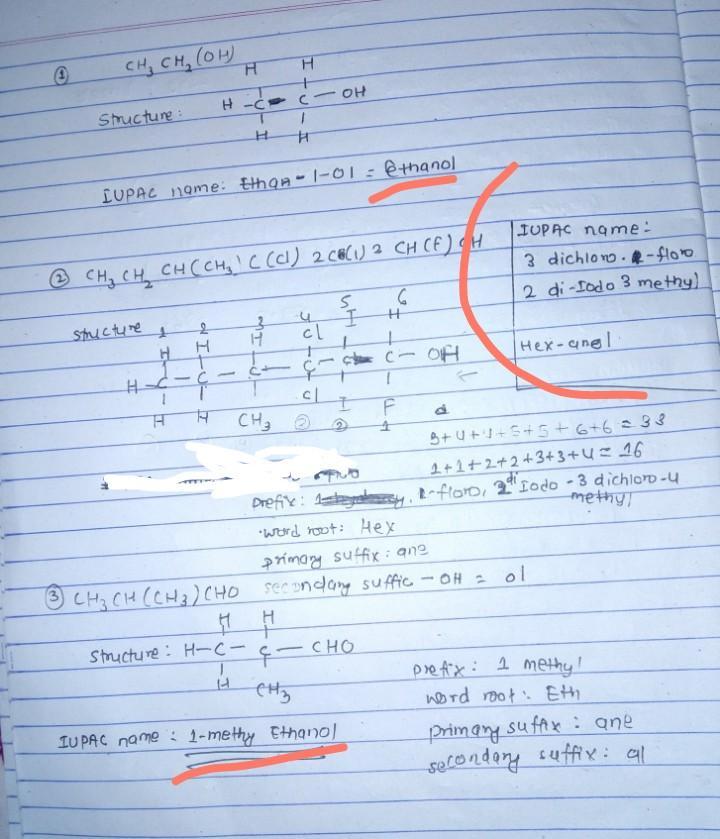 ① CH3 CH2 (OH)
H H
Structure: H - C - C - OH
H H
IUPAC name: Ethan-1-ol = ethanol
② CH3 CH2 CH(CH3' C(Cl) 2 C(I) 2 CH(F) OH
IUPAC name:
3 dichloro. 1-floro
2 di-Iodo 3 methyl
Hex-anol
Structure 1 2 3 4 5 6
H H H Cl I H
H - C - C - C - C - C - C - OH
H H CH3 Cl I F
② ② 1
3+4+4+5+5+6+6 = 33
1+1+2+2+3+3+4 = 16
prefix: 1-floro, 2 di Iodo - 3 dichloro-4
methyl
word root: Hex
primary suffix: ane
secondary suffic - OH = ol
③ CH3 CH (CH3) CHO
H H
Structure: H-C- C - CHO
H CH3
prefix: 1 methyl
word root: Eth
primary suffix: ane
secondary suffix: al
IUPAC name: 1-methy Ethanol